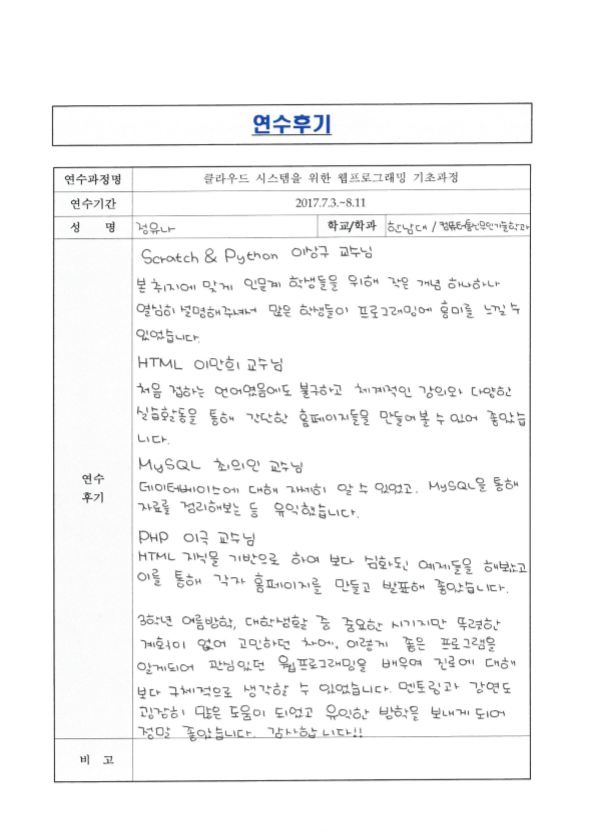 연수후기
연수과정명 클라우드 시스템을 위한 웹프로그래밍 기초과정
연수기간 2017.7.3.~8.11
성 명 정유나 학교/학과 한남대 / 컴퓨터통신무인기술학과
Scratch & Python 이상구 교수님
본 취지에 맞게 인문계 학생들을 위해 작은 개념 하나하나
열심히 설명해주셔서 많은 학생들이 프로그래밍에 흥미를 느낄 수
있었습니다.
HTML 이만희 교수님
처음 접하는 언어였음에도 불구하고 체계적인 강의와 다양한
실습활동을 통해 간단한 홈페이지들을 만들어볼 수 있어 좋았습
니다.
MySQL 최의인 교수님
데이터베이스에 대해 자세히 알 수 있었고, MySQL을 통해
자료를 정리해보는 등 유익했습니다.
연수
후기
PHP 이극 교수님
HTML 지식을 기반으로 하여 보다 심화된 예제들을 해보았고
이를 통해 각자 홈페이지를 만들고 발표해 좋았습니다.
3학년 여름방학, 대학생활 중 중요한 시기지만 뚜렷한
계획이 없어 고민하던 차에, 이렇게 좋은 프로그램을
알게되어 관심있던 웹프로그래밍을 배우며 진로에 대해
보다 구체적으로 생각할 수 있었습니다. 멘토링과 강연도
굉장히 많은 도움이 되었고 유익한 방학을 보내게 되어
정말 좋았습니다. 감사합니다!!
비 고